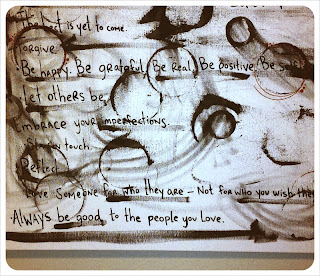 The best is yet to come.
Forgive.
Be happy. Be grateful. Be Real. Be positive. Be
Let others be.
Embrace your imperfections.
Stay in touch.
Reflect.
Love Someone for who they are – Not for who you wish they
·ALWAYS be good to the people you love.